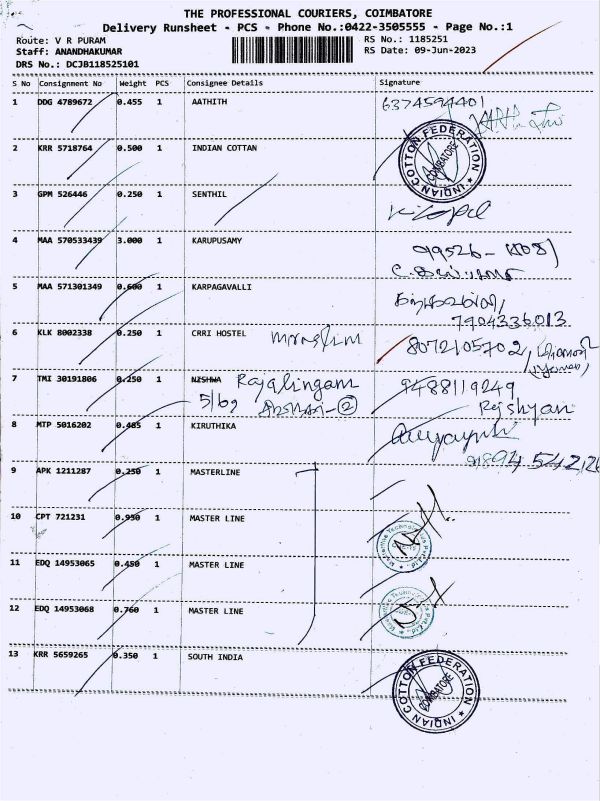 THE PROFESSIONAL COURIERS, COIMBATORE
Delivery Runsheet - PCS - Phone No.:0422-3505555 - Page No.:1
Route: V R PURAM
RS No.: 1185251
Staff: ANANDHAKUMAR
RS Date: 09-Jun-2023
DRS No.: DCJB118525101
S No Consignment No Weight PCS Consignee Details Signature
1 DDG 4789672 0.455 1 AATHITH 6374594401
2 KRR 5718764 0.500 1 INDIAN COTTAN
INDIAN COTTON FEDERATION COIMBATORE
3 GPM 526446 0.250 1 SENTHIL
4 MAA 570533439 3.000 1 KARUPUSAMY
5 MAA 571301349 0.600 1 KARPAGAVALLI
7904336013
6 KLK 8002338 0.250 1 CRRI HOSTEL 8072105702
7 TMI 30191806 0.250 1 NISHWA Rajalingam 9488119249
5/69
8 MTP 5016202 0.485 1 KIRUTHIKA
9 APK 1211287 0.250 1 MASTERLINE
10 CPT 721231 0.950 1 MASTER LINE
11 EDQ 14953065 0.450 1 MASTER LINE
12 EDQ 14953068 0.760 1 MASTER LINE
13 KRR 5659265 0.350 1 SOUTH INDIA
INDIAN COTTON FEDERATION COIMBATORE